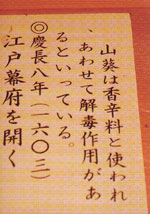 山葵は香辛料と使われ
、あわせて解毒作用があ
るといっている。
◎慶長八年(一六〇三)
江戸幕府を開く